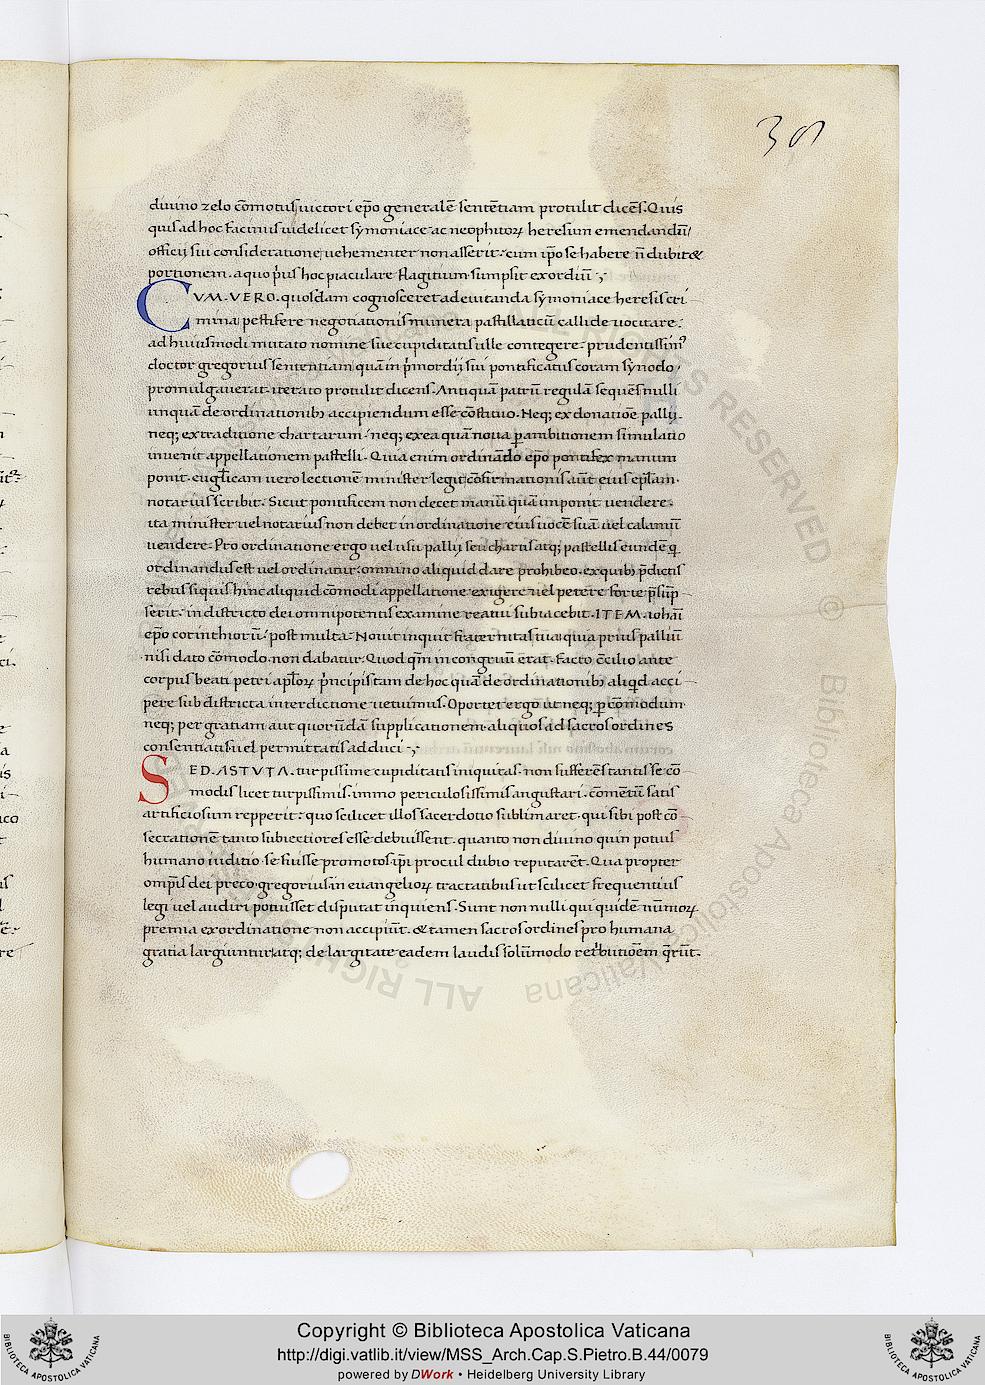 38
diuino zelo cōmotus uictori ep̄o generalē sentētiam protulit dicēs. Quis
quis ad hoc facinus uidelicet symoniace ac neophitoꝝ heresium emendandū/
officij sui consideratione uehementer non asserit: cum ip̄o se habere ñ dubit&
portionem. a quo p̄us hoc piaculare flagitium sumpsit exordiū ;
CVM. VERO. quosdam cognosceret ad euitanda symoniace heresis cri
mina pestifere negotiationis munera pastillaticū callide uocitare:
ad huiusmodi mutato nomine sue cupiditatis uelle contegere. prudentissim᾽
doctor gregorius sententiam quā in p̄mordijs sui pontificatus coram synodo/
promulgauerat. iterato protulit dicens. Antiquā patrū regulā sequēs nulli
unquā de ordinationib; accipiendum esse cōstituo. Neq; ex donatiōe pallij.
neq; ex traditione chartarum. neq; ex ea quā noua ꝑ ambitionem simulatio
inuenit appellationem pastelli. Quia enim ordinādo ep̄o pontifex manum
ponit. euglicam uero lectionē minister legit cōfirmationis aūt eius epl̄am.
notarius scribit. Sicut pontificem non decet manū quā imponit uendere.
ita minister uel notarius non debet in ordinatione eius uocē suā uel calamū
uendere. Pro ordinatione ergo uel usu pallij seu chartis atq; pastellis eundē q̄
ordinandus est uel ordinatur. omnino aliquid dare prohibeo. ex quib; p̄dictis
rebus siquis hinc aliquid cōmodi appellatione exigere uel petere forte p̄sūp
serit. in districto dei omnipotentis examine reatui subiacebit. ITEM. iohāi
ep̄o corinthiorū. post multa. Nouit inquit fraternitas tua quia prius palliū
nisi dato cōmodo. non dabatur. Quod qm̄ incongruū erat. facto cōcilio ante
corpus beati petri apl̄oꝝ p̄ncipis tam de hoc quā de ordinationib; aliqd̄ acci
pere sub districta interdictione uetuimus. Oportet ergo ut neq; ꝑ cōmodum
neq; per gratiam aut quorūdā supplicationem aliquos ad sacros ordines
consentiatis uel permittatis adduci ;
SED. ASTVTA. turpissime cupiditatis iniquitas. non sufferēs tantis se cō
modis licet turpissimis. immo periculosissimis angustari. cōmētū satis
artificiosum repperit: quo scilicet illos sacerdotio sublimaret. qui sibi post cō
secrationē tanto subiectiores esse debuissent. quanto non diuino quin potius
humano iuditio se fuisse promotos ip̄i procul dubio reputarēt. Qua propter
omp̄is dei preco gregorius in euangelioꝝ tractatibus ut scilicet frequentius
legi uel audiri potuisset disputat inquiens. Sunt non nulli qui quidē nūmoꝝ
premia ex ordinatione non accipiūt. & tamen sacros ordines pro humana
gratia largiuntur. atq; de largitate eadem laudis solūmodo retributiōem q̄rūt.
ALL RIGHTS RESERVED
© Biblioteca Apostolica Vaticana
Copyright © Biblioteca Apostolica Vaticana
http://digi.vatlib.it/view/MSS_Arch.Cap.S.Pietro.B.44/0079
powered by DWork • Heidelberg University Library
BIBLIOTECA APOSTOLICA VATICANA
BIBLIOTECA APOSTOLICA VATICANA